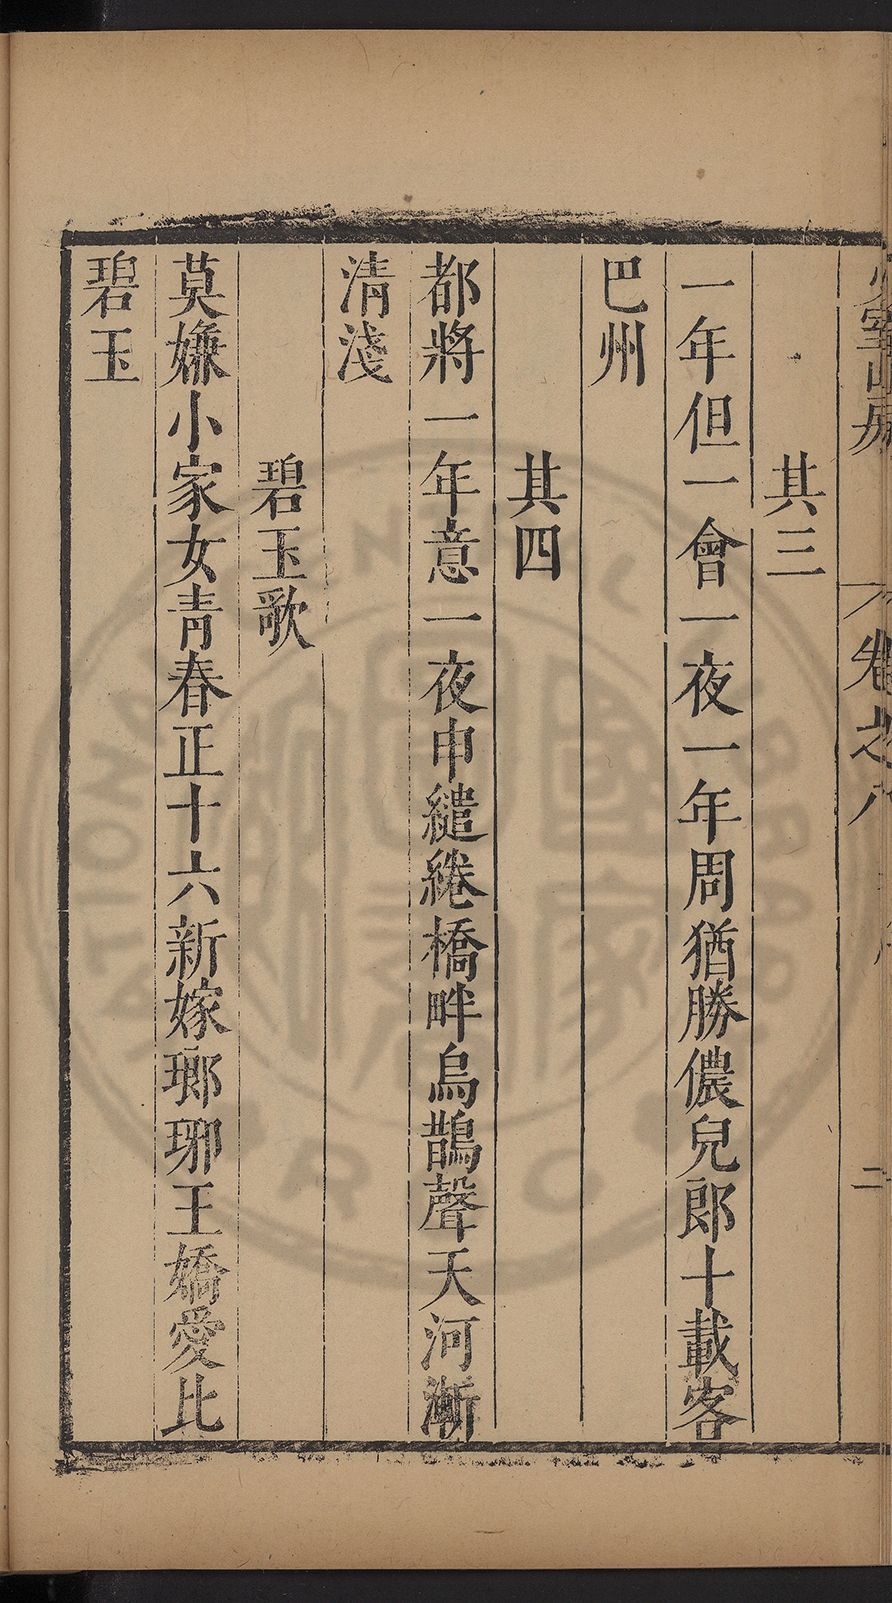 卷之八
二
其三
一年但一會一夜一年周猶勝儂兒郎十載客
巴州
其四
都將一年意一夜申繾綣橋畔烏鵲聲天河漸
清淺
碧玉歌
莫嫌小家女青春正十六新嫁瑯琊王嬌愛比
碧玉